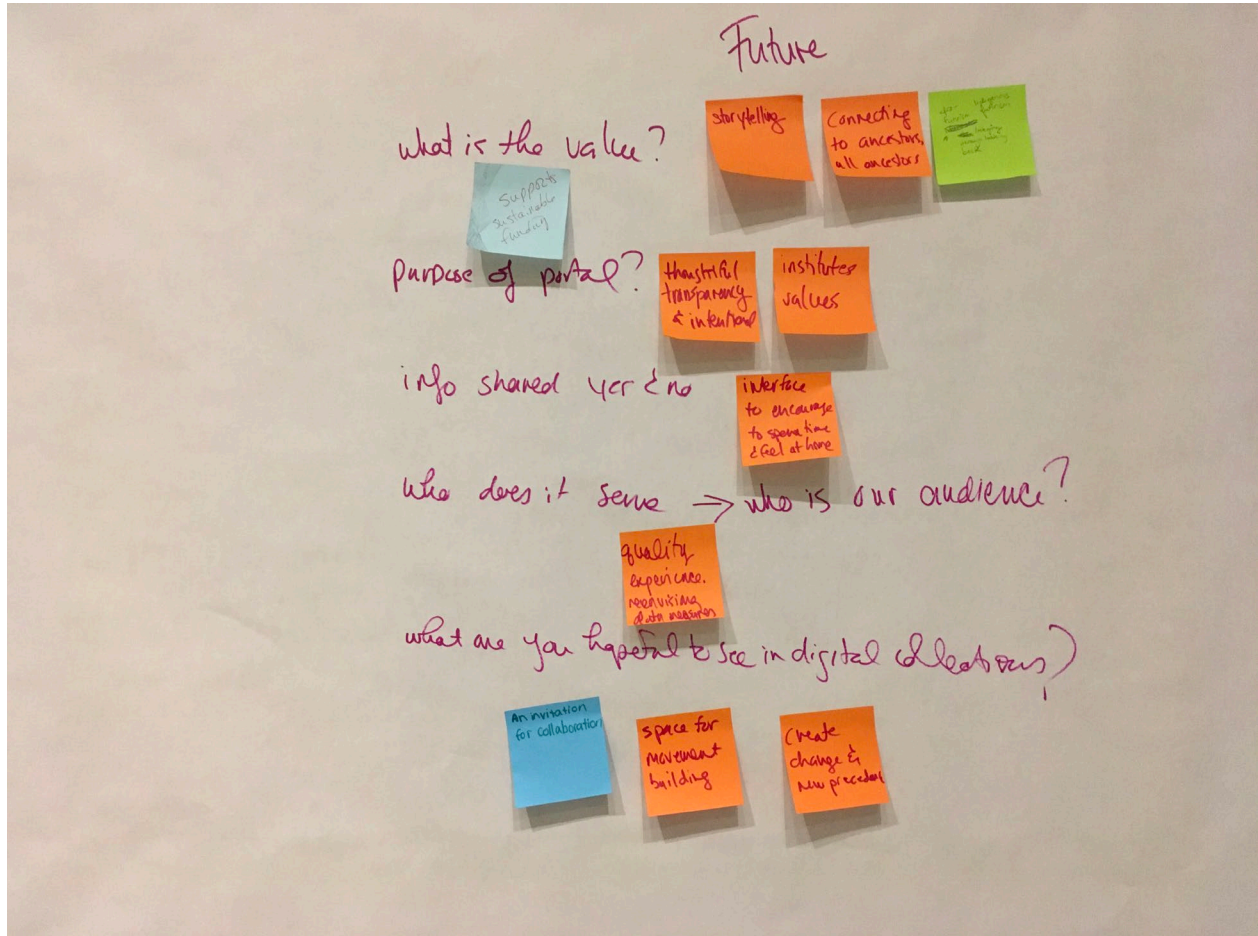 Future
what is the value?
storytelling
connecting
to ancestors,
all ancestors
back
supports
sustainable
funding
purpose of portal?
thoughtful
transparency
& intentional
institutes
values
info shared yer & no
interface
to encourage
to spend time
& feel at home
who does it serve → who is our audience?
quality
experience.
reenvising
data measures
what are you hopeful to see in digital collections?
An invitation
for collaboration
space for
movement
building
create
change &
new precedent